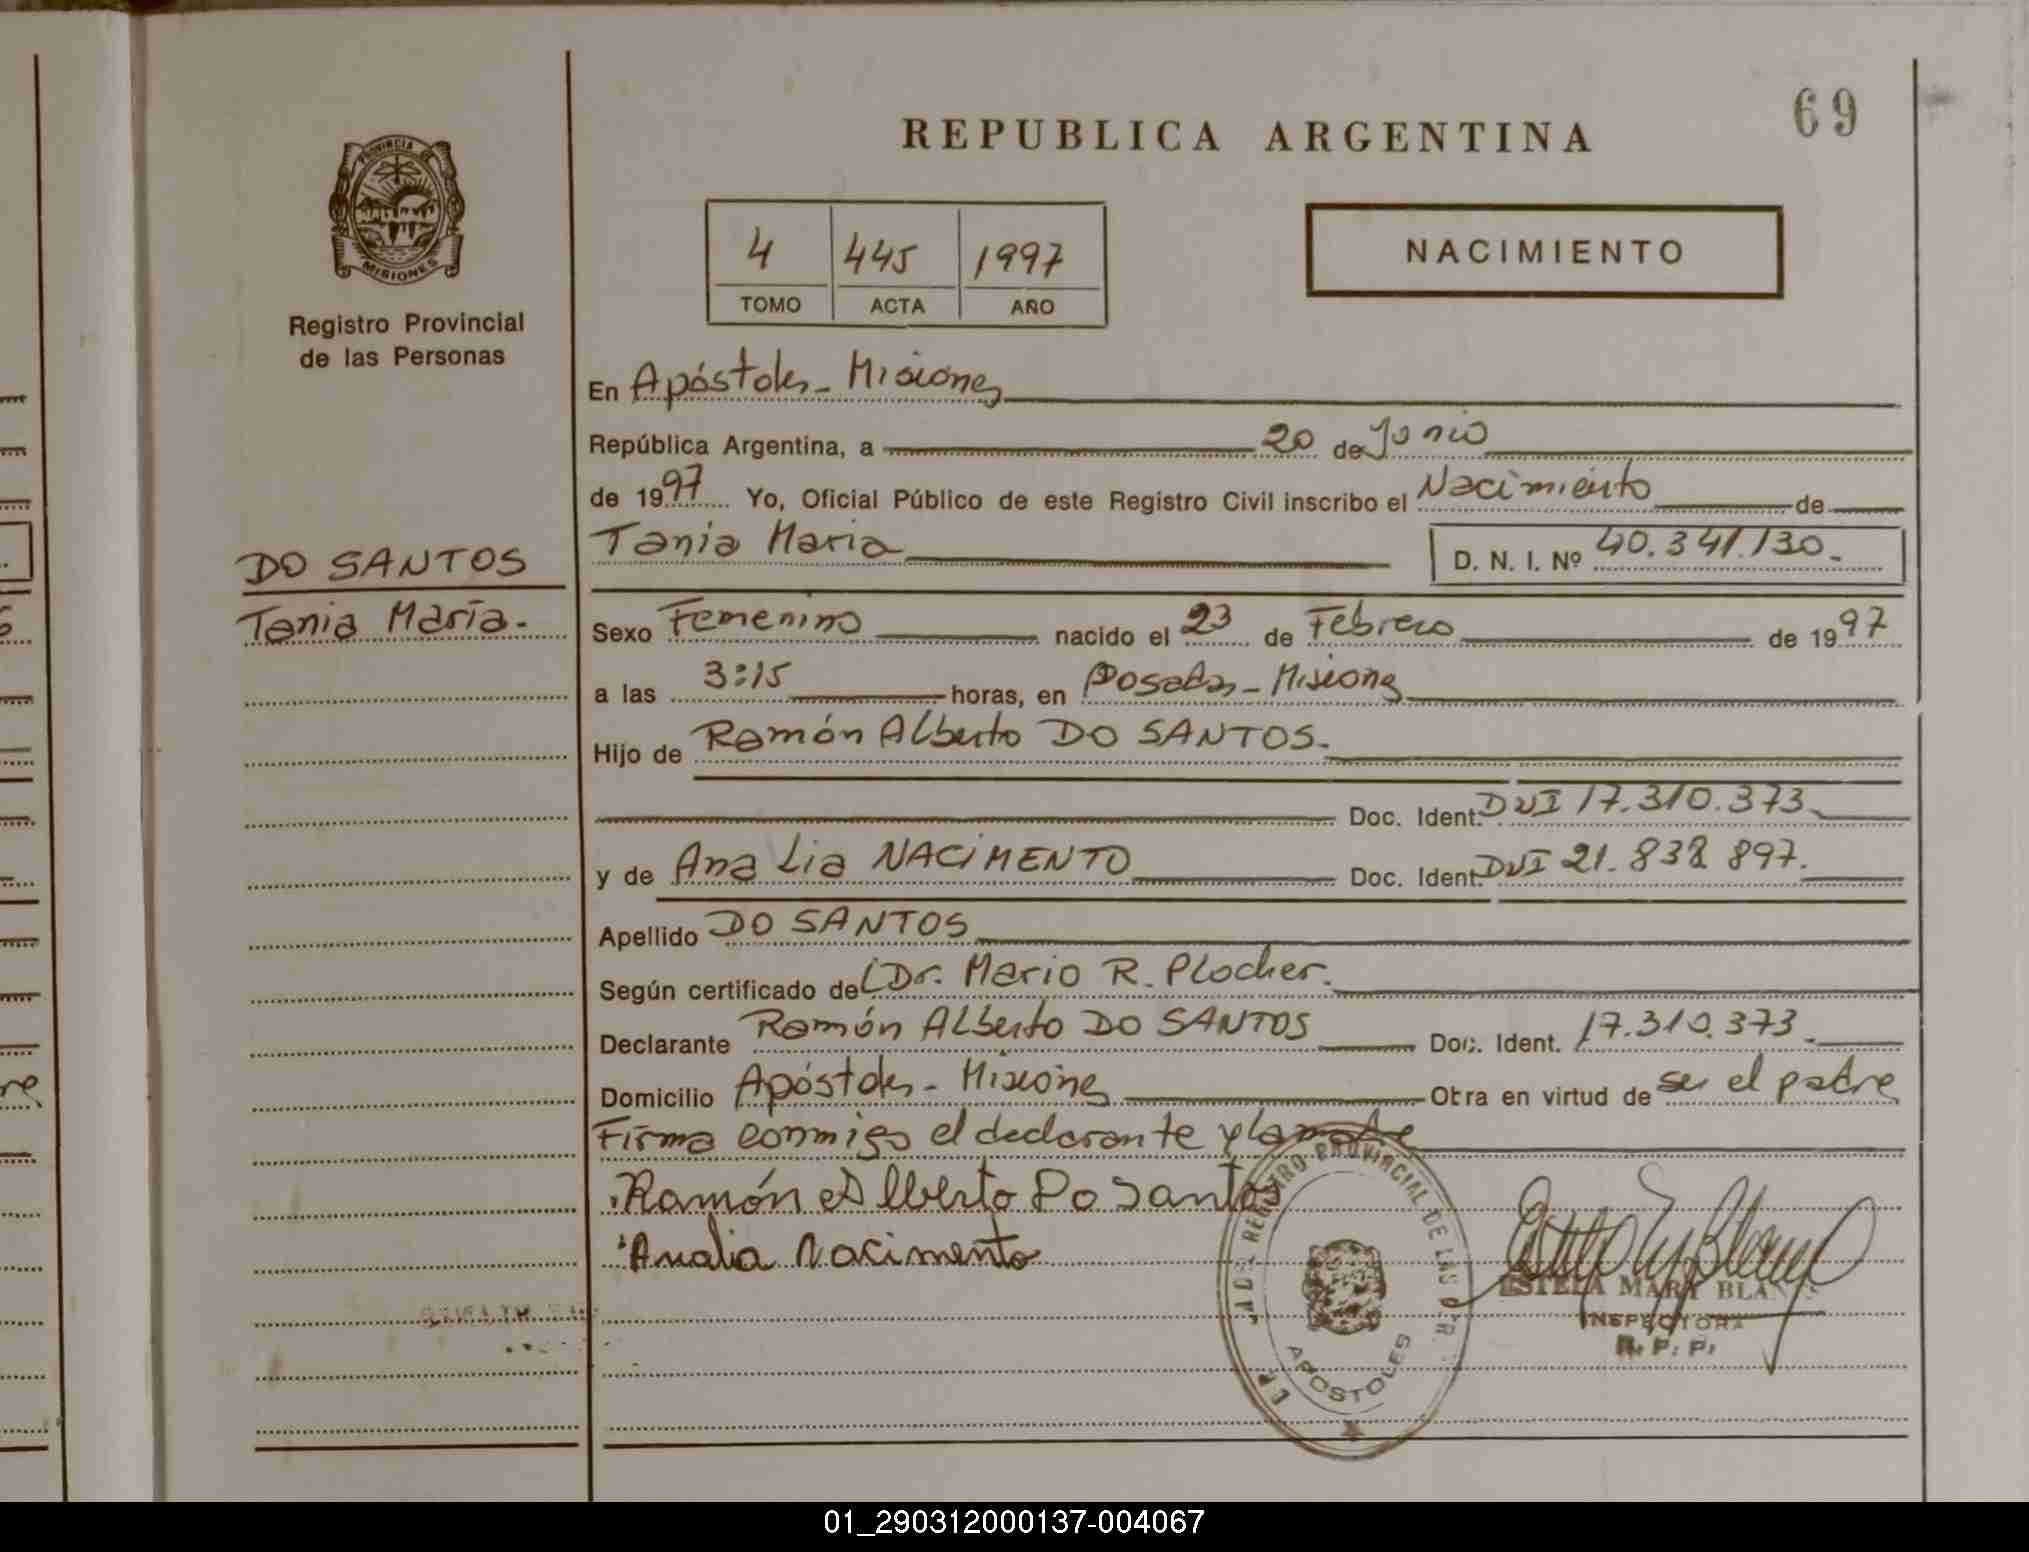 69
REPUBLICA ARGENTINA
PROVINCIA DE
MISIONES
Registro Provincial
de las Personas
4 445 1997
TOMO ACTA AÑO
NACIMIENTO
En Apóstoles - Misiones
República Argentina, a 20 de Junio
de 1997 Yo, Oficial Público de este Registro Civil inscribo el Nacimiento de
DO SANTOS
Tania María.
Tania Maria D. N. I. Nº 40.341.130.-
Sexo Femenino nacido el 23 de Febrero de 1997
a las 3:15 horas, en Posadas - Misiones
Hijo de Ramón Alberto DO SANTOS.
Doc. Ident. DNI 17.310.373.
y de Ana Lia NACIMENTO Doc. Ident. DNI 21.838 897.
Apellido DO SANTOS
Según certificado de Dr. Mario R. Plocher.
Declarante Ramón Alberto DO SANTOS Doc. Ident. 17.310.373.
Domicilio Apóstoles - Misiones Otra en virtud de ser el padre
Firma conmigo el declarante y la madre
Ramón Alberto Do Santos
Analia Nacimento
REGISTRO PROVINCIAL DE LAS
APOSTOLES
ESTELA MARY
INSPECTORA
R. P. P.
01_290312000137-004067